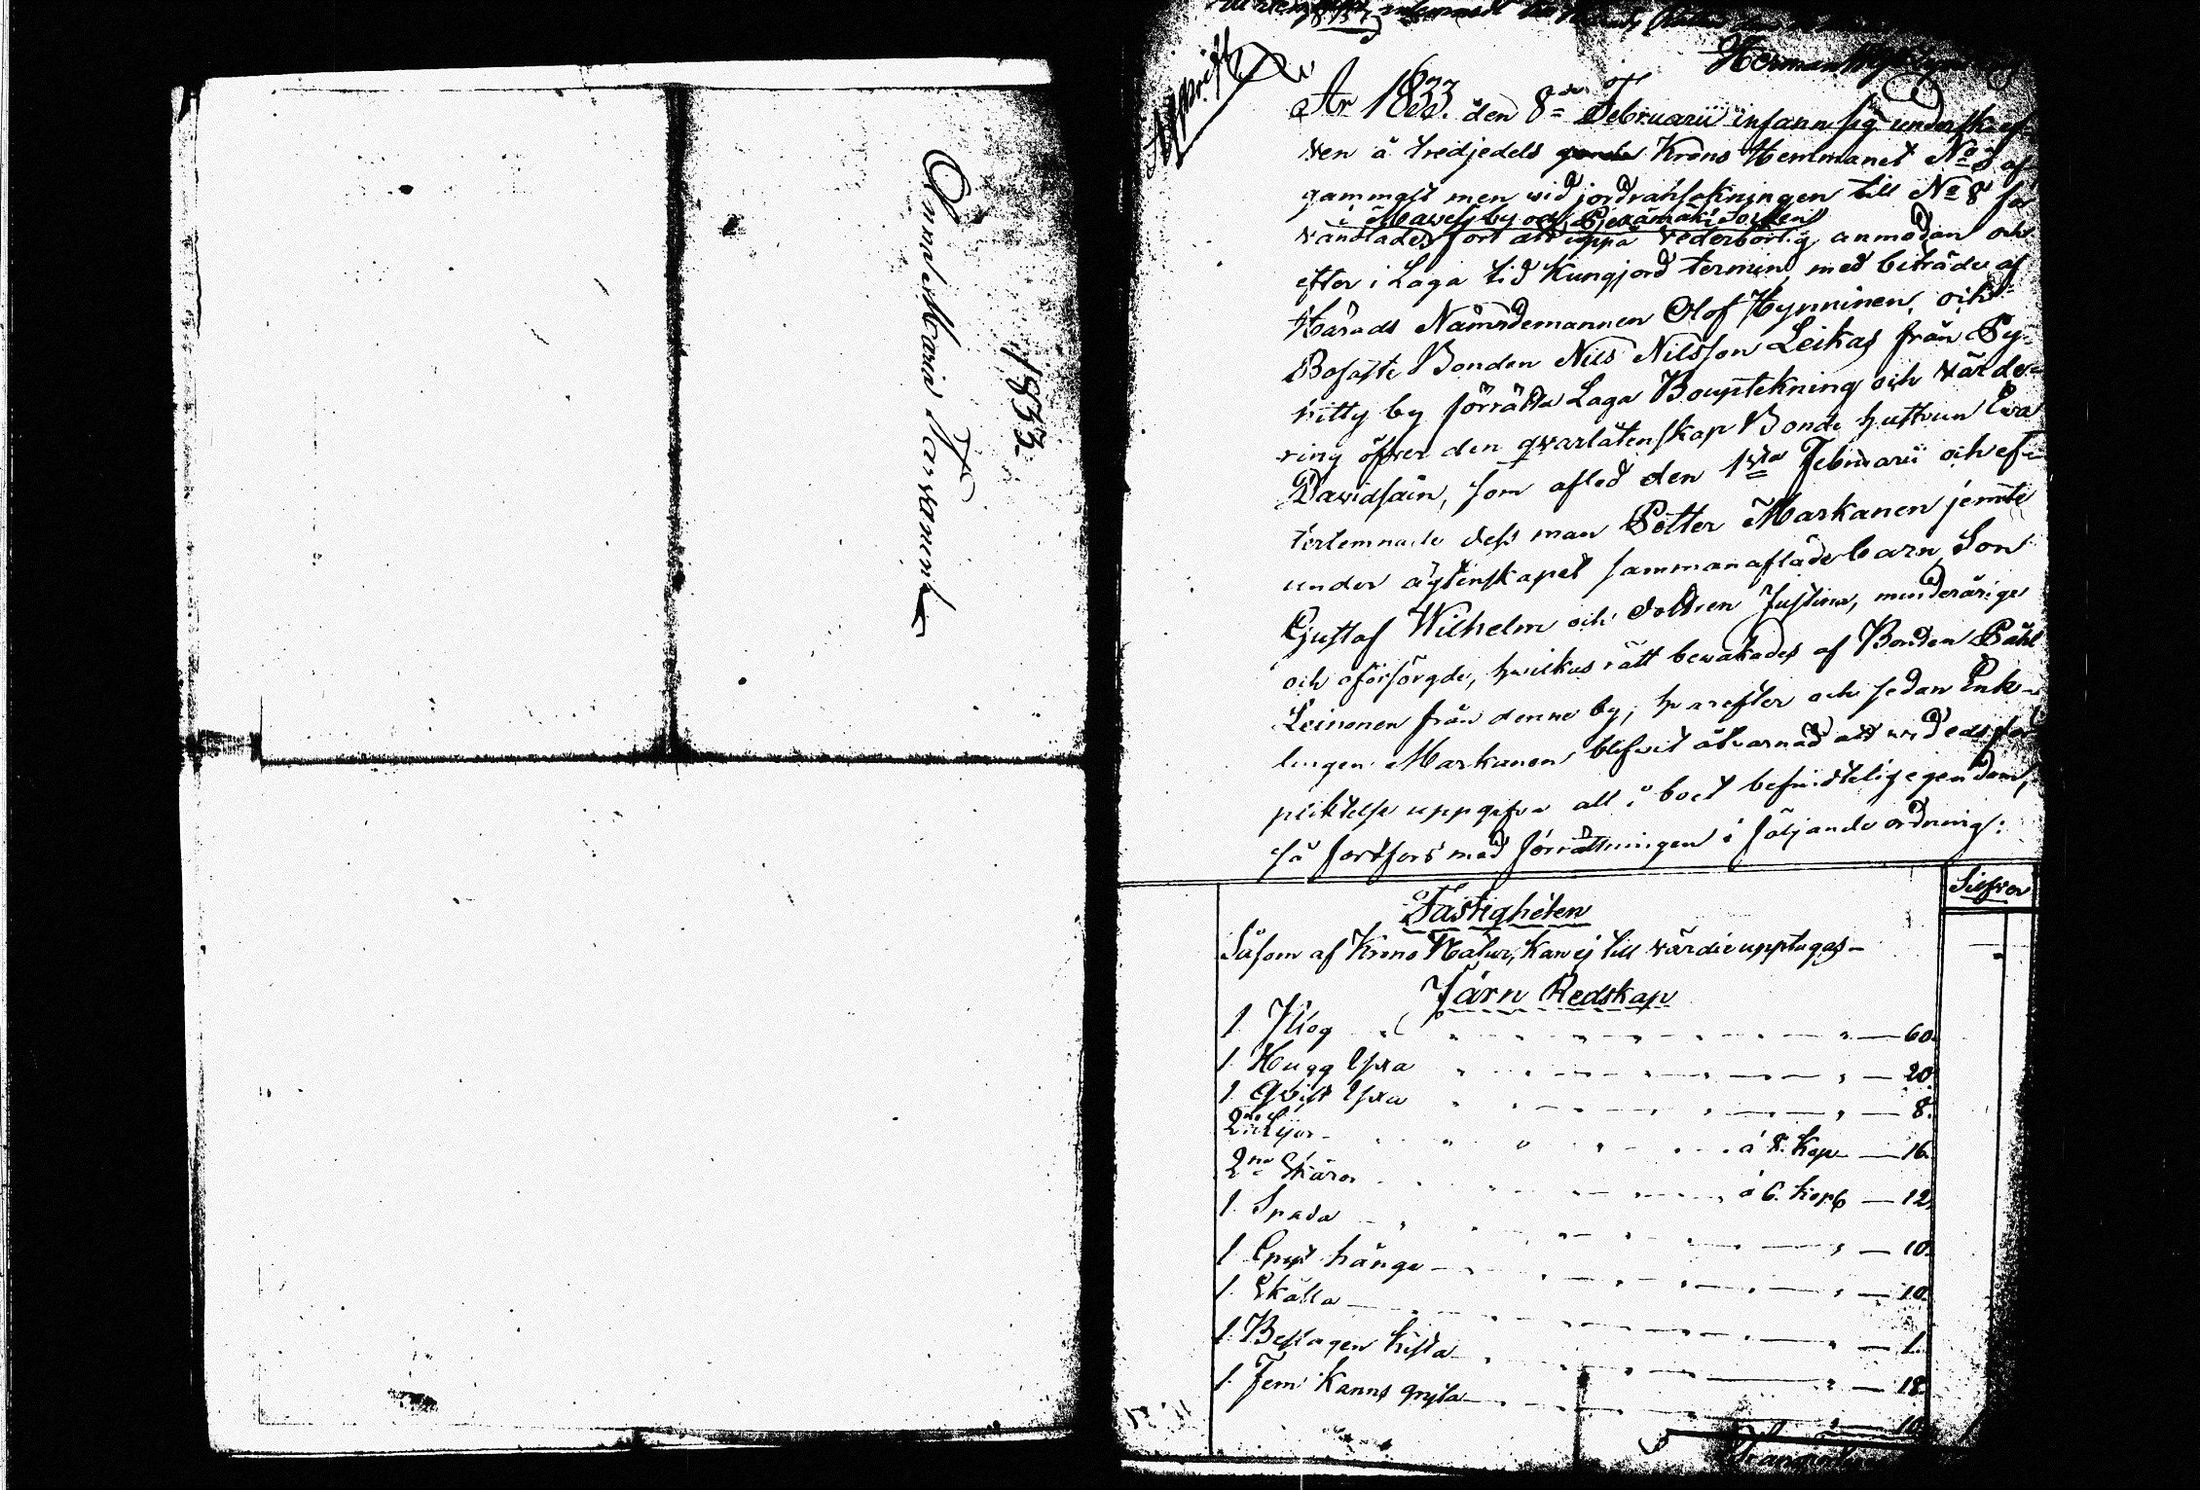 1833.
Anna Maria
Afskrift
Herman
År 1833. den 8de Februarii infann sig underskref-
ven å tredjedels Krono Hemmanet No 3 af
gammalt men vid jordransakningen till No 8 för
i by och Pjexämäki Socken
vandlades, för att uppå vederbörlig anmodan och
efter i Laga tid kungjord termin, med biträde af
Härads Nämndemannen Olof Hynninen, och
Bofaste Bonden Nils Nilsson Leikas från Py-
hitty by förrätta Laga Bouptekning och värde-
ring öfver den qvarlåtenskap Bonde hustrun Eva
Davidsdn, som afled den 1sta Februarii och ef-
terlemnade dess man Petter Markanen jemte
under ägtenskapet sammanaflade barn, Son
Gustaf Wilhelm och dottren Justina, minderårige
och oförsörgde, hvilkas rätt bevakades af Bonden Påhl
Leinonen från denne by; hvarefter och sedan Enk-
lingen Markanen blifvit åtvarnad att vid eds för
pliktelse uppgifva all i boet befintelig egendom,
så fortfors med förrättningen i följande ordning:
Silfver
Fastigheten
Såsom af Krono Natur, kan ej till värde upptagas –
Järn Redskap
1 Plog — 60.
1 Hugg Yxa — 20.
1 Qvist Yxa — 8.
2ne Lijor — á 8. Kop — 16.
2ne Skäror — á 6. Kop — 12.
1 Spada — 10.
1 Spjel hänge — 10.
1 Skälla — 1.
1 Beslagen kista — 18.
1 Fem Kanns gryta — 10.